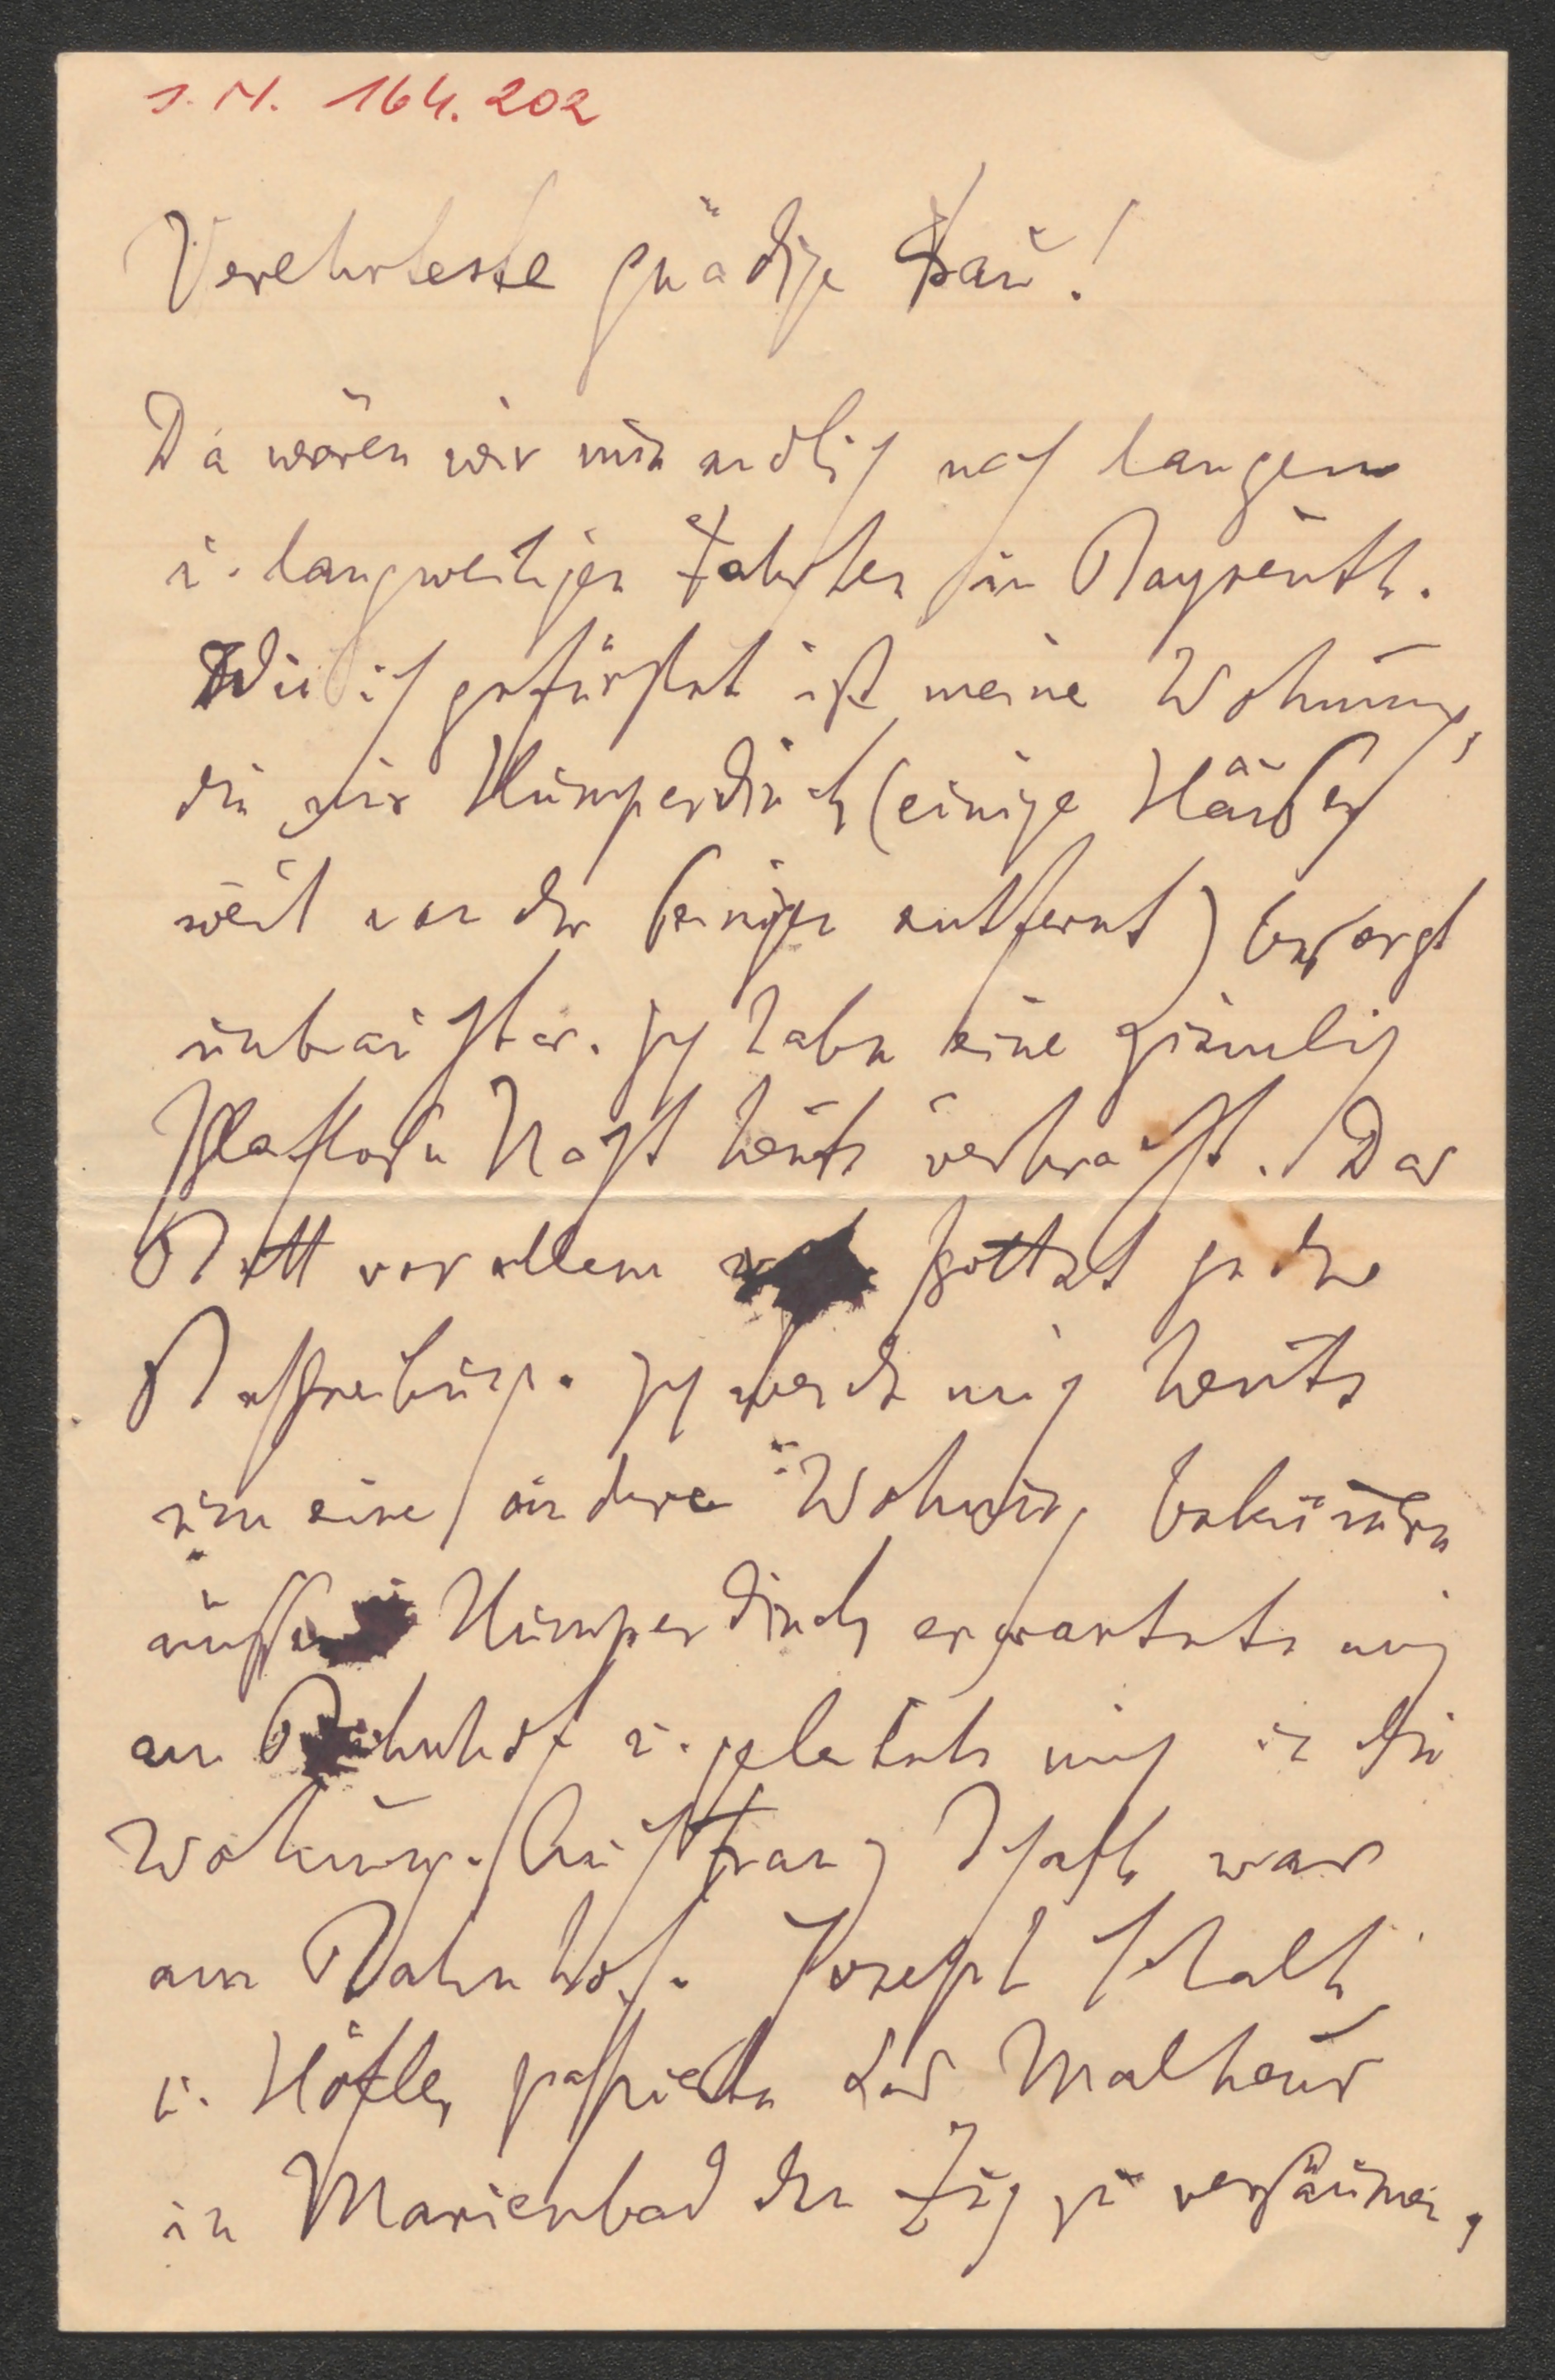 I. N. 164.202
Verehrteste gnädige Frau!
Da wären wir nun endlich nach langen
u. langweiligen Fahrten in Bayreuth.
Wie ich gefürchtet ist meine Wohnung,
die mir Humperdinck (einige Häuser
weit von der seinigen entfernt) besorgt
unbrauchbar. Ich habe eine ziemlich
schlaflose Nacht heute verbracht. Das
Bett vor allem spottet jeder
Beschreibung. Ich werde mich heute
um eine andere Wohnung bekümern
Humperdinck erwartete mich
am Bahnhof u. geleitete mich in die
Wohnung. Auch Franz Schalk war
am Bahnhof. Joseph Schalk
u. Höfler passierte das Malheur
in Marienbad den Zug zu versäumen,